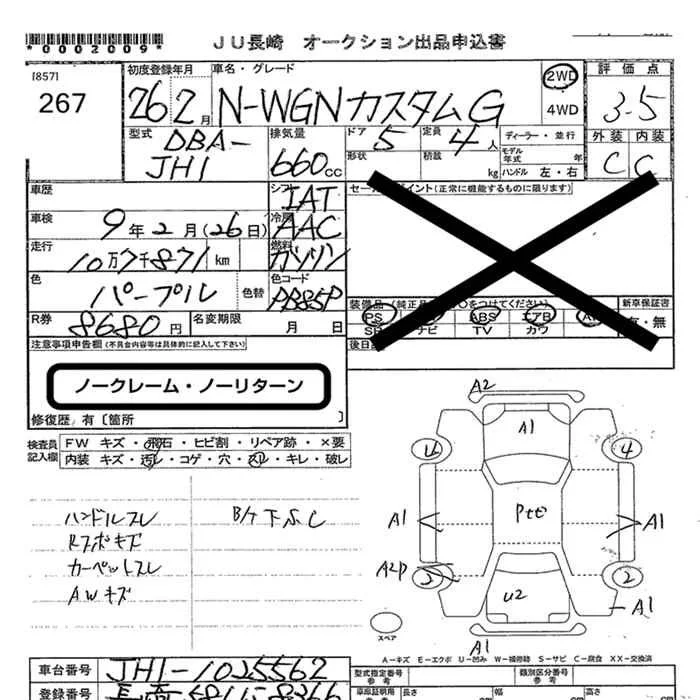 *0002009*
JU長崎 オークション出品申込書
[857]
267
初度登録年月
26 2月
車名・グレード
N-WGNカスタムG
2WD
4WD
評価点
3.5
型式
DBA-
JH1
排気量
660cc
ドア
5
定員
4人
形状
積載
kg
ディーラー・並行
モデル年式
年
ハンドル 左・右
外装 内装
C C
車歴
シフト
IAT
セールスポイント(正常に機能するものに限ります)
車検
9年2月(26日)
冷房
AAC
走行
10万7千871km
燃料
ガソリン
色
パープル
色替
色コード
PB85P
装備品(純正
○をつけてください)
新車保証書
有・無
PS
ABS
エアB
SR
ナビ
TV
カワ
R券
8680円
名変期限
月 日
後日
注意事項申告欄(不具合内容等は具体的に記入して下さい)
ノークレーム・ノーリターン
修復歴 有〔箇所 〕
検査員
記入欄
FW キズ・飛石・ヒビ割・リペア跡・×要
内装 キズ・汚レ・コゲ・穴・スレ・キレ・破レ
ハンドルスレ
Rスポキズ
カーペットスレ
AWキズ
B/ケ下ふし
A2
A1
4
4
A1
A1
A2P
2
2
U2
A1
A1
スペア
A-キズ E-エクボ U-凹み W-補修跡 S-サビ C-腐食 XX-交換済
車台番号
JH1-1025562
型式指定番号
類別区分番号
登録番号
車庫証明用
参考
長さ
幅
高さ
cm